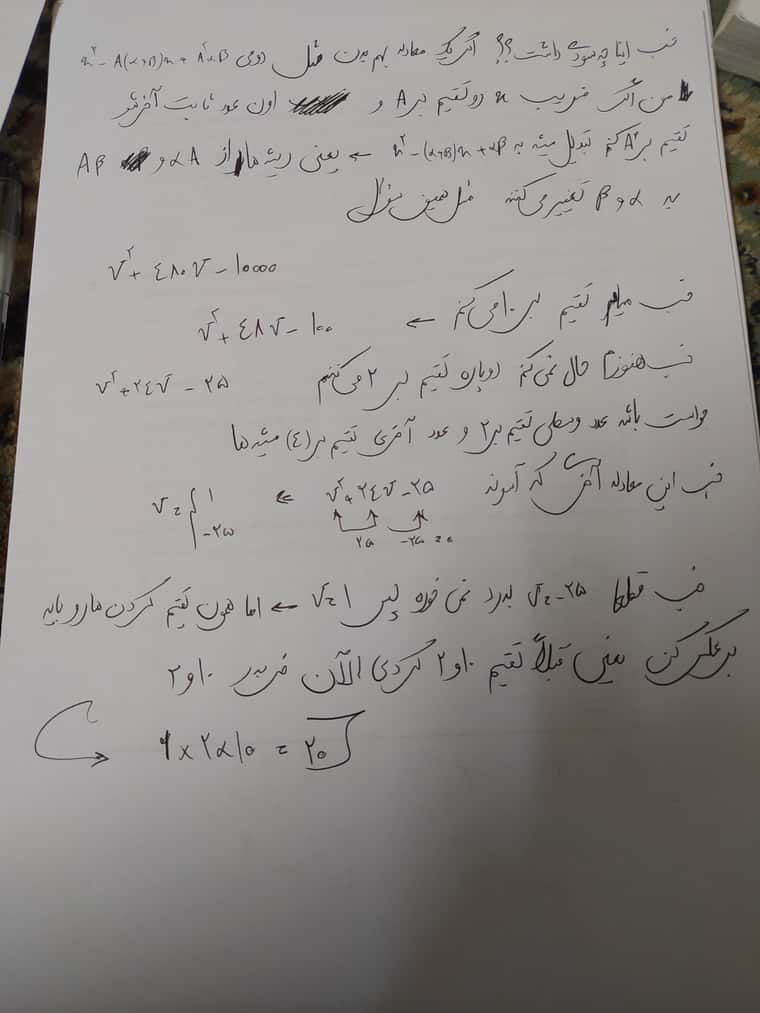 خب اینا چه سودی داشت؟؟ اگر یک معادله بهم بدن مثل دومی x² - A(α+β)x + A²αβ
من اگر ضریب x رو تقسیم بر A و اون عدد ثابت آخر رو
تقسیم بر A² کنم تبدیل میشه به x² - (α+β)x + αβ ← یعنی ریشه ها از αA و Aβ
به α و β تغییر می کنند مثل همین سوال
V² + ٤٨٠V - ١٠٠٠٠
خب میام تقسیم بر ١٠ می کنم ← V² + ٤٨V - ١٠٠
خب هنوزم حال نمی کنم دوباره تقسیم بر ٢ می کنم V² + ٢٤V - ٢۵
حواست باشه عدد وسطی تقیم بر ٢ و عدد آخری تقیم بر (٤) میشه ها
خب این معادله آخری که آسونه V² + ٢٤V - ٢۵ ⇒ V = { ١
-٢۵
٢۵ -٢۵ = ٥
خب قطعا V = -٢۵ بدرد نمی خوره پس V = ١ ← اما همون تقیم کردن ها رو باید
برعکس کن یعنی قبلاً تقیم ١٠ و ٢ کردی الآن ضربدر ١٠ و ٢
١ × ٢ × ١٠ = ٢٠